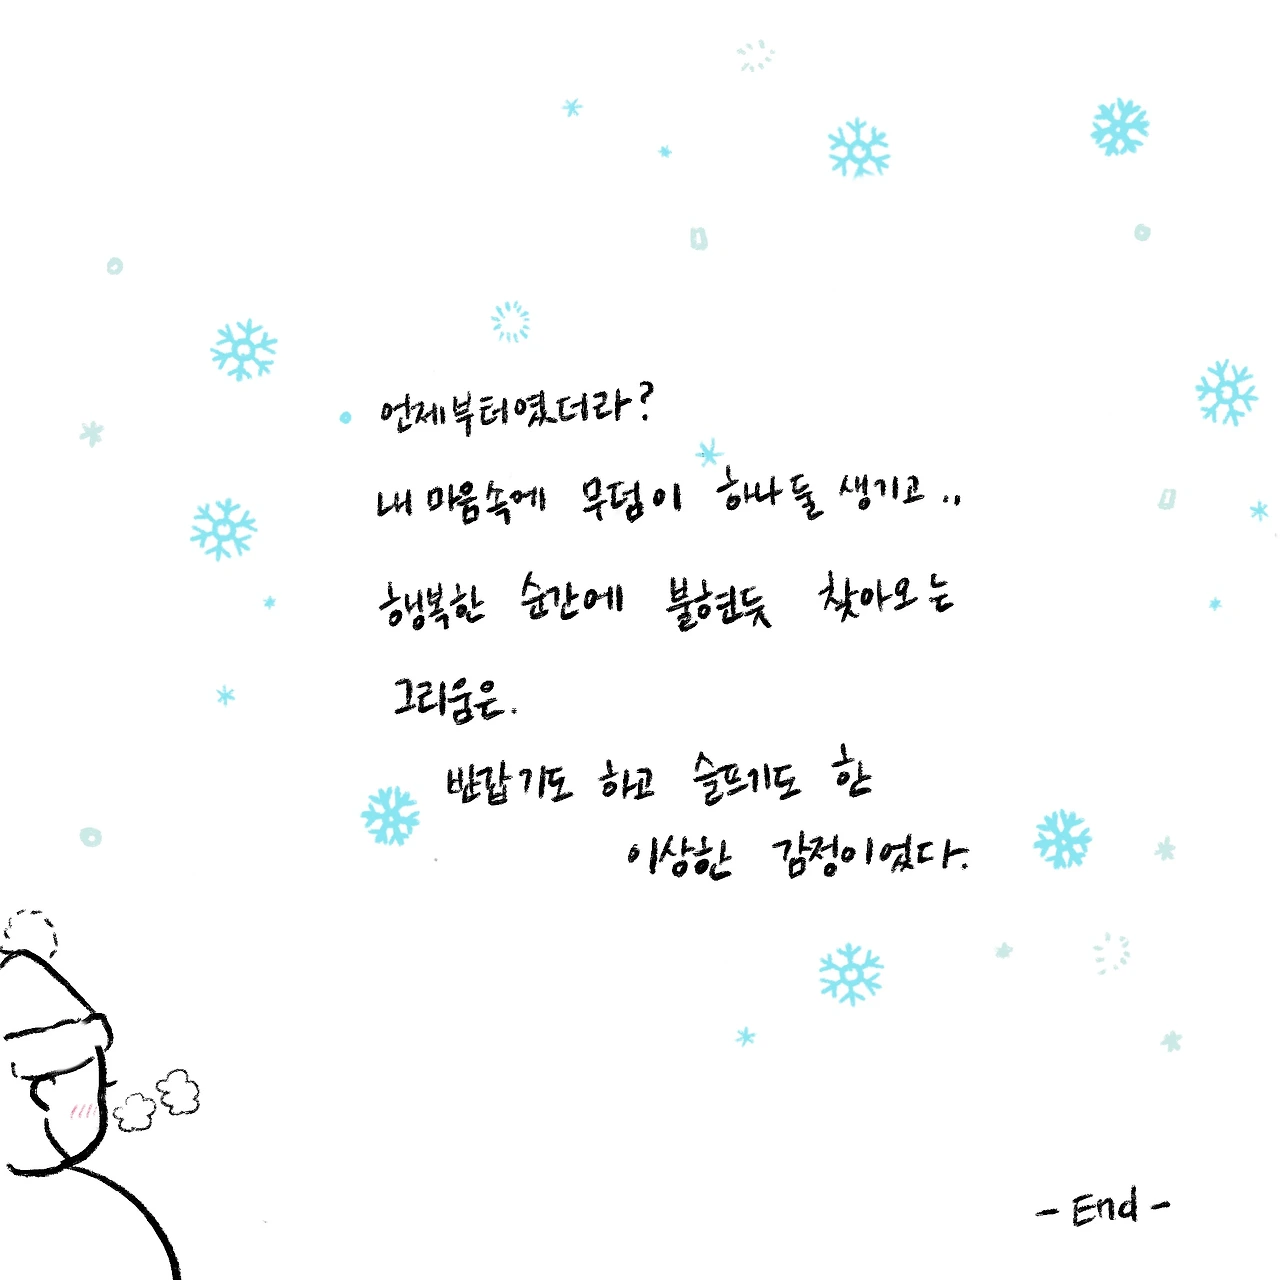 언제부터였더라?
내 마음속에 무덤이 하나 둘 생기고..
행복한 순간에 불현듯 찾아오는
그리움은.
반갑기도 하고 슬프기도 한
이상한 감정이었다.
- End -